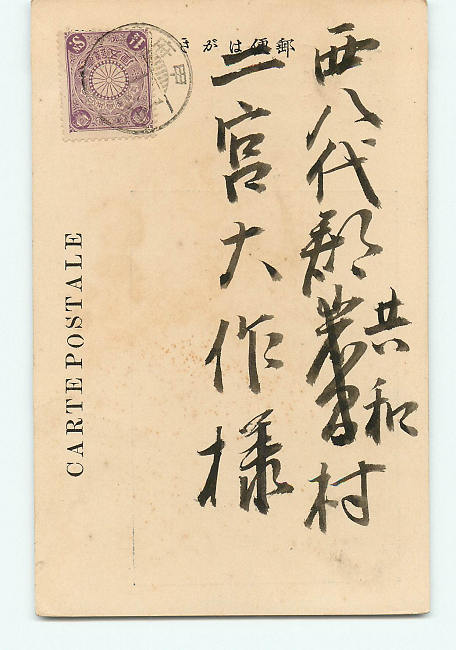 郵便はがき
西八代郡
共和村
二宮大作様
CARTE POSTALE